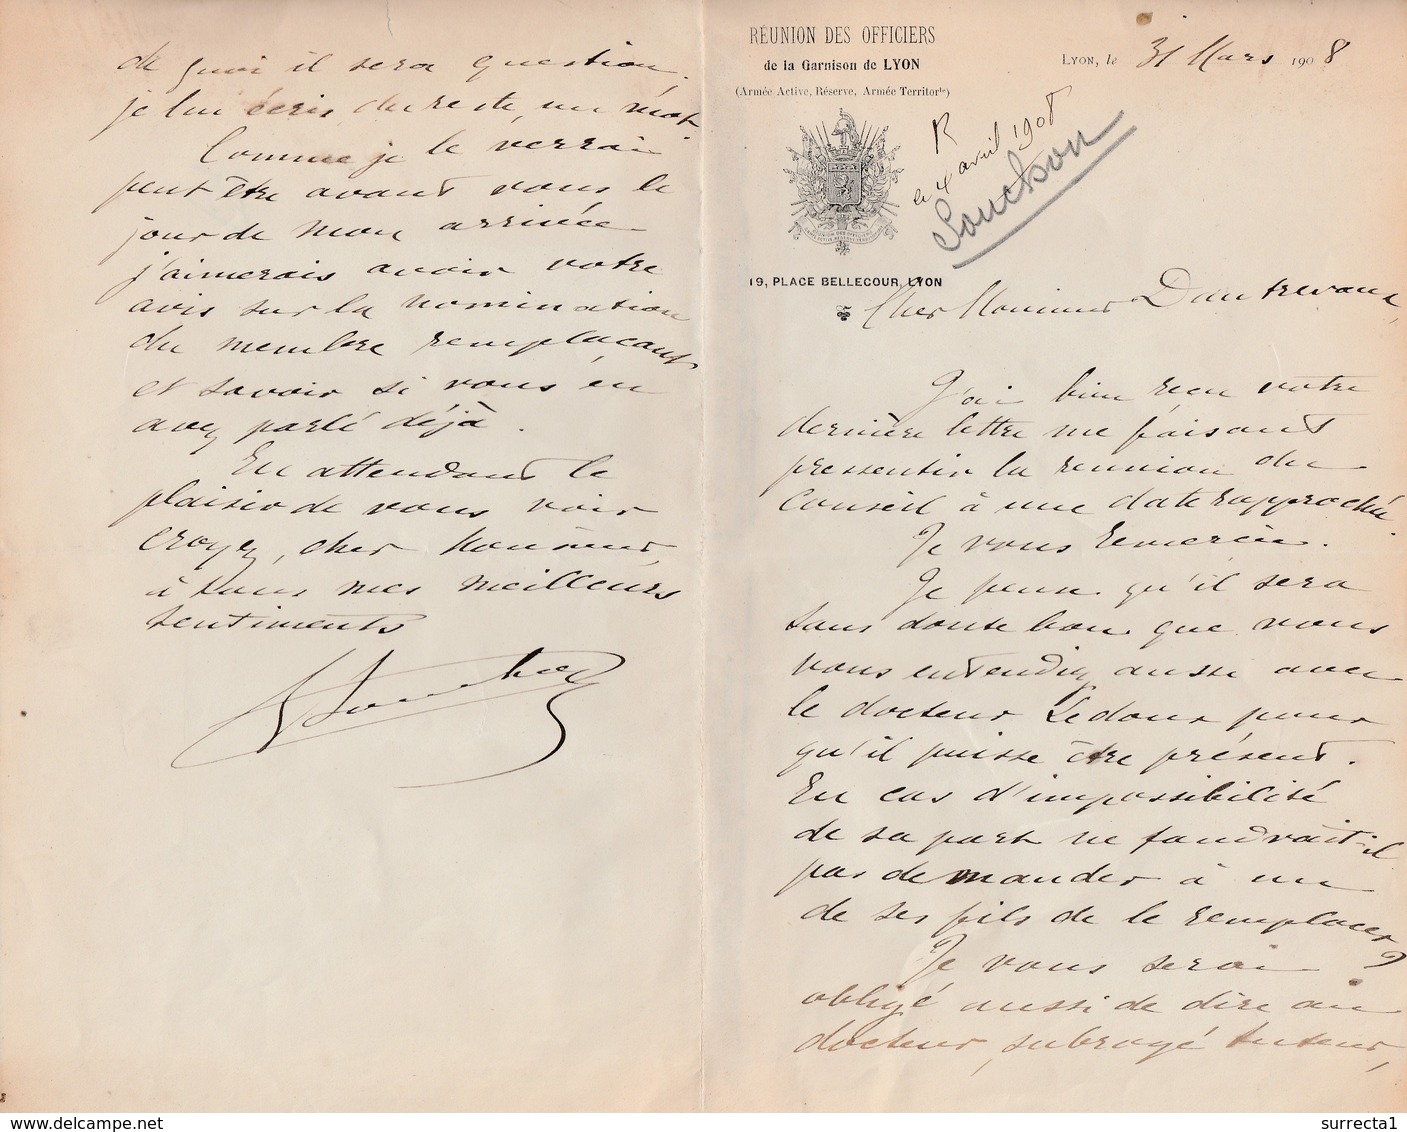 RÉUNION DES OFFICIERS
de la Garnison de LYON
(Armée Active, Réserve, Armée Territorle)
LYON, le 31 Mars 1908
R
le 4 avril 1908
Souchon
19, PLACE BELLECOUR, LYON
Cher Monsieur Dautrevaux,
J'ai bien reçu votre
dernière lettre me faisant
pressentir la reunion du
Conseil à une date rapprochée
Je vous remercie.
Je pense qu'il sera
sans doute bon que vous
vous entendiez aussi avec
le docteur Ledoux pour
qu'il puisse être présent.
En cas d'impossibilité
de sa part ne faudrait-il
pas demander à un
de ses fils de le remplacer?
Je vous serai
obligé aussi de dire au
docteur, subrogé tuteur,
de quoi il sera question,
je lui écris du reste un mot
Comme je le verrai
peut être avant vous le
jour de mon arrivée
j'aimerais avoir votre
avis sur la nomination
du membre remplaçant
et savoir si vous en
avez parlé déjà.
En attendant le
plaisir de vous voir
croyez, cher Monsieur,
à tous mes meilleurs
sentiments
Souchon
surrecta1